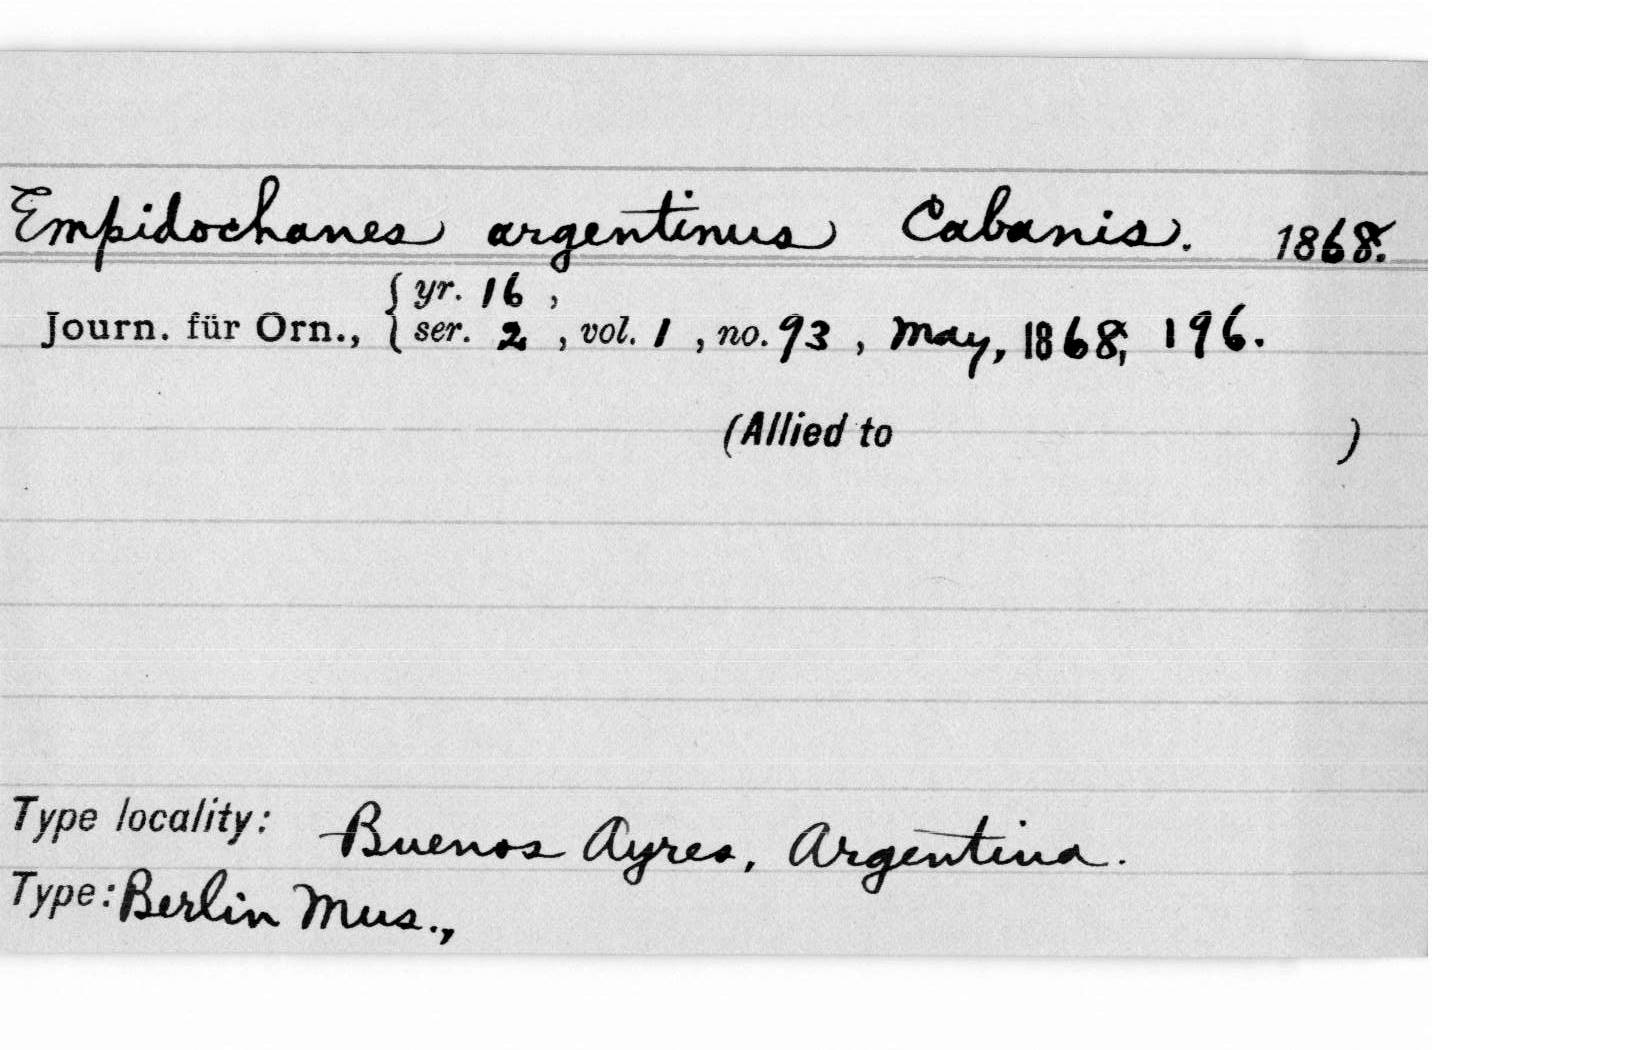 Empidochanes argentinus Cabanis. 1868.
Journ. für Orn., { yr. 16 ,
ser. 2 , vol. 1 , no. 93 , May, 1868, 196.
(Allied to )
Type locality: Buenos Ayres, Argentina.
Type: Berlin Mus.,